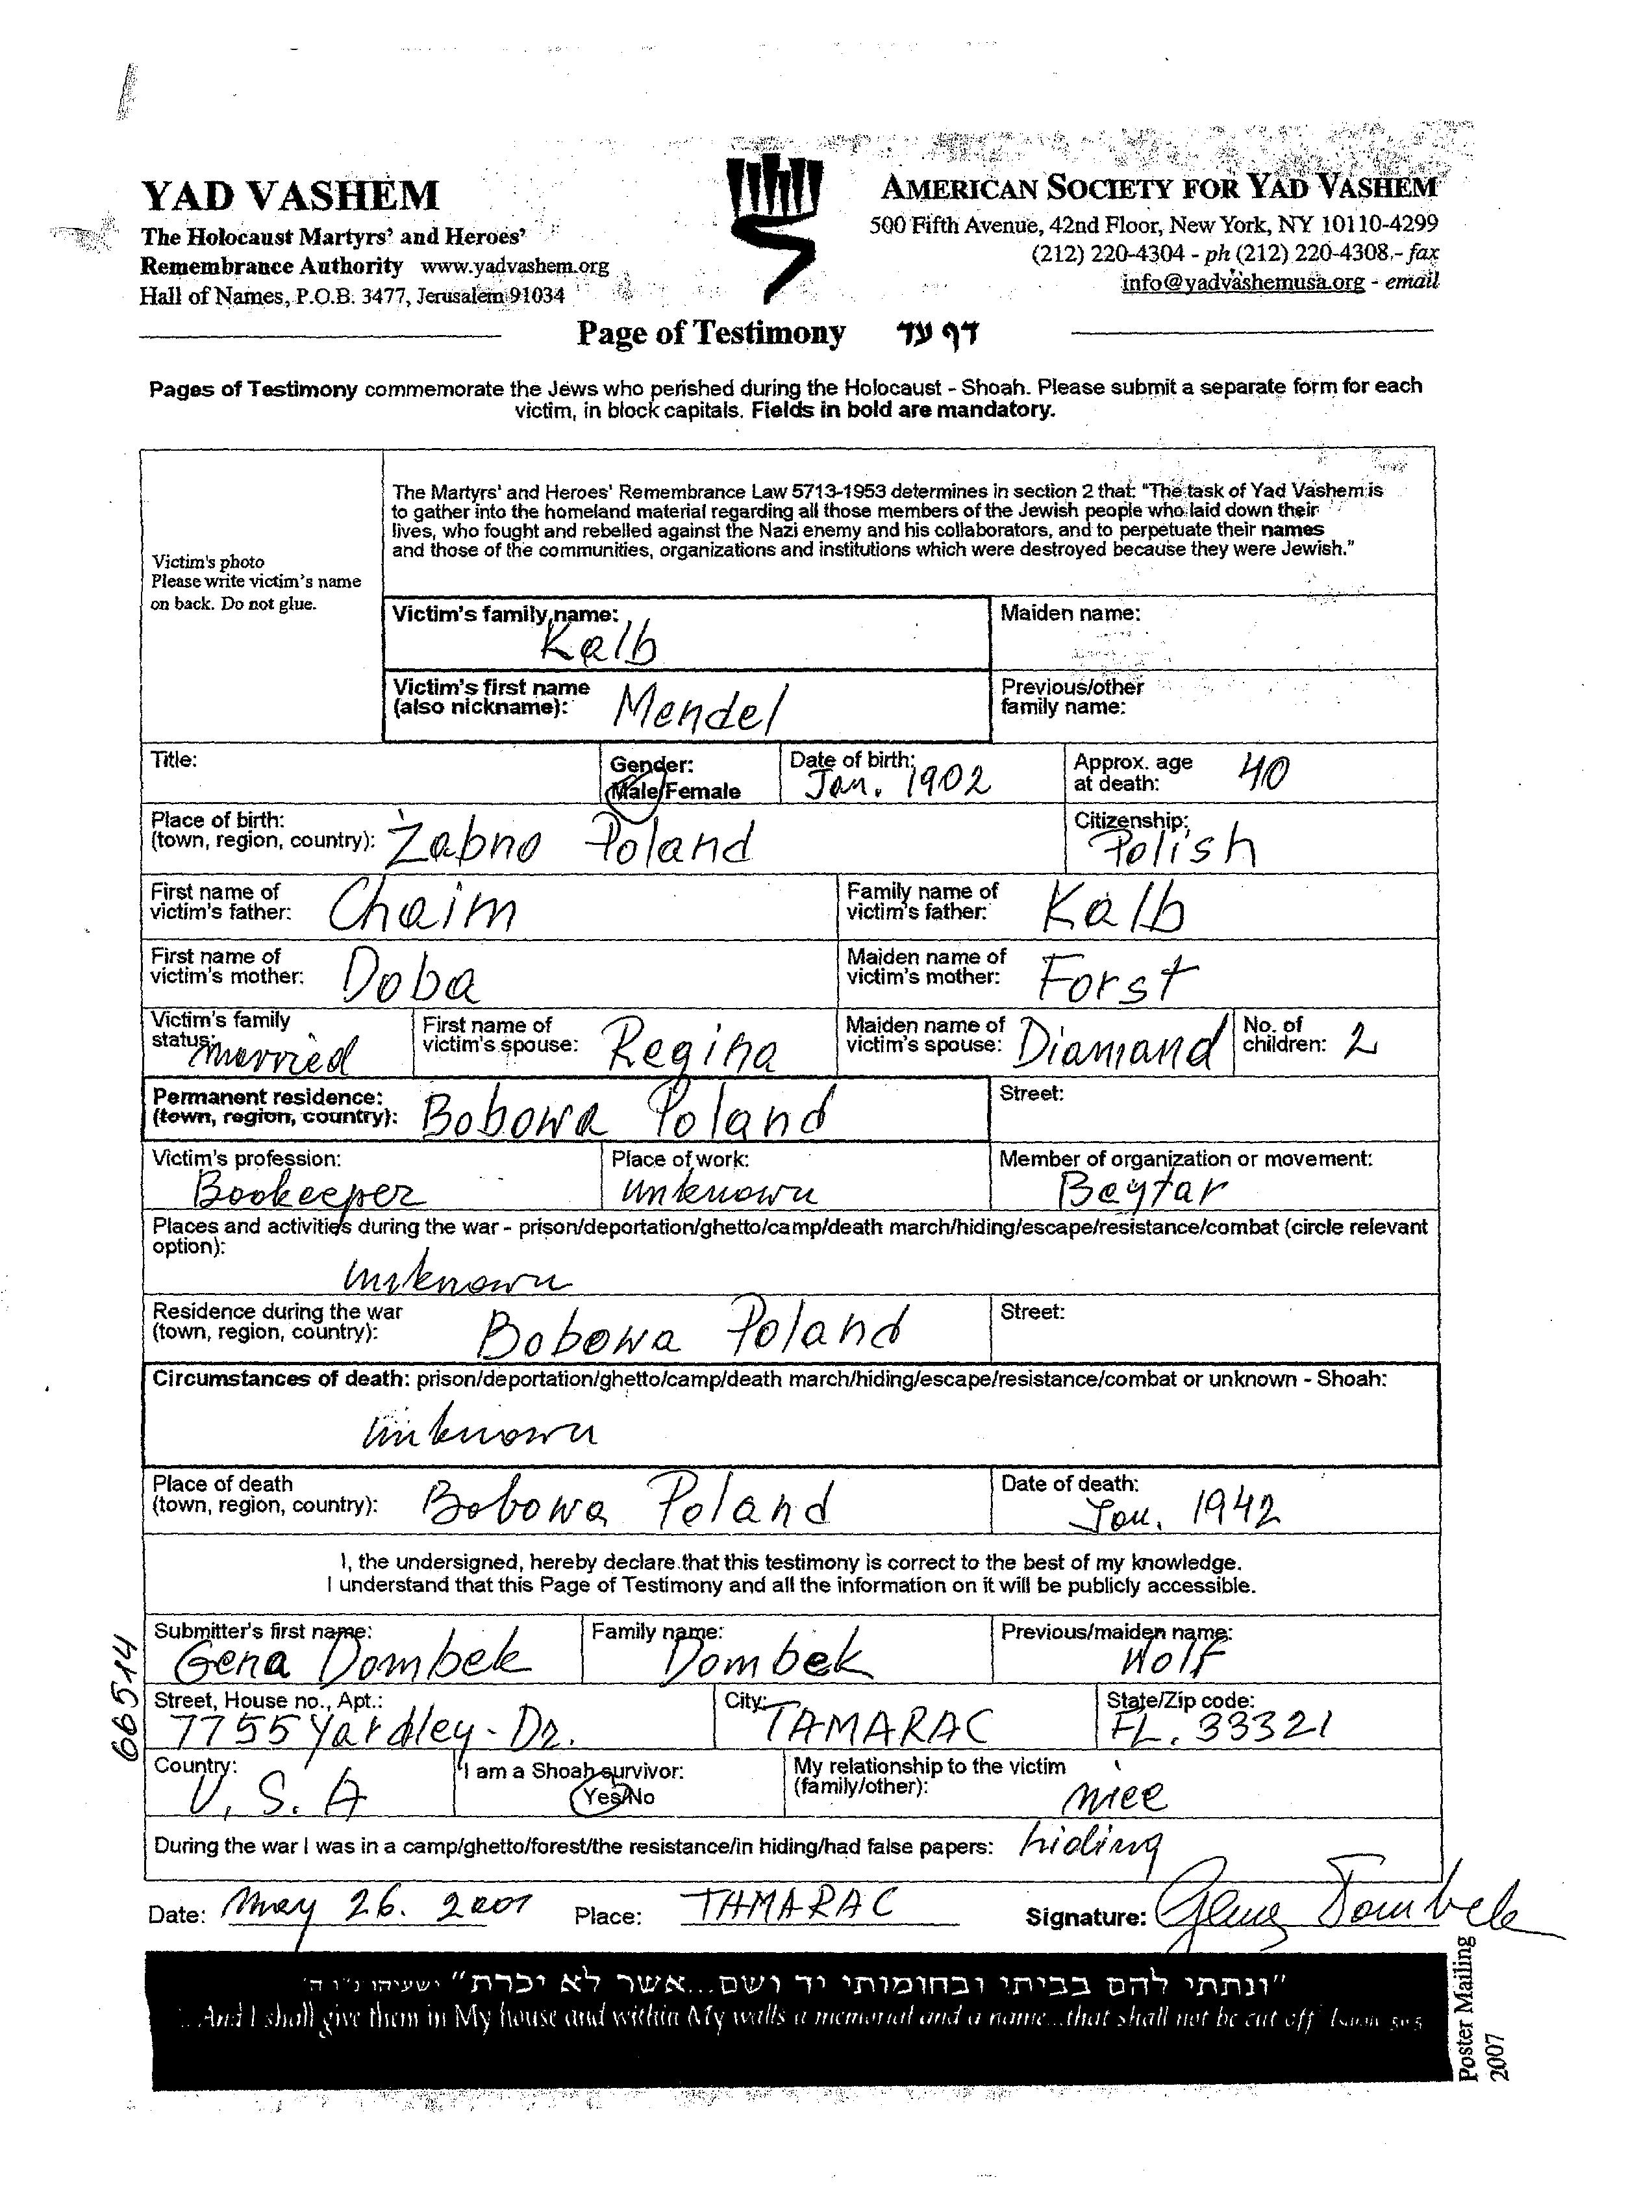 YAD VASHEM
The Holocaust Martyrs' and Heroes'
Remembrance Authority www.yadvashem.org
Hall of Names, P.O.B. 3477, Jerusalem 91034
AMERICAN SOCIETY FOR YAD VASHEM
500 Fifth Avenue, 42nd Floor, New York, NY 10110-4299
(212) 220-4304 - ph (212) 220-4308 - fax
info@yadvashemusa.org - email
Page of Testimony דף עד
Pages of Testimony commemorate the Jews who perished during the Holocaust - Shoah. Please submit a separate form for each
victim, in block capitals. Fields in bold are mandatory.
Victim's photo
Please write victim's name
on back. Do not glue.
The Martyrs' and Heroes' Remembrance Law 5713-1953 determines in section 2 that: "The task of Yad Vashem is
to gather into the homeland material regarding all those members of the Jewish people who laid down their
lives, who fought and rebelled against the Nazi enemy and his collaborators, and to perpetuate their names
and those of the communities, organizations and institutions which were destroyed because they were Jewish."
Victim's family name: Kalb
Maiden name:
Victim's first name
(also nickname): Mendel
Previous/other
family name:
Title:
Gender:
Male/Female
Date of birth:
Jan. 1902
Approx. age
at death: 40
Place of birth:
(town, region, country): Żabno Poland
Citizenship:
Polish
First name of
victim's father: Chaim
Family name of
victim's father: Kalb
First name of
victim's mother: Doba
Maiden name of
victim's mother: Forst
Victim's family
status: married
First name of
victim's spouse: Regina
Maiden name of
victim's spouse: Diamand
No. of
children: 2
Permanent residence:
(town, region, country): Bobowa Poland
Street:
Victim's profession:
Bookeeper
Place of work:
unknown
Member of organization or movement:
Beytar
Places and activities during the war - prison/deportation/ghetto/camp/death march/hiding/escape/resistance/combat (circle relevant
option):
unknown
Residence during the war
(town, region, country): Bobowa Poland
Street:
Circumstances of death: prison/deportation/ghetto/camp/death march/hiding/escape/resistance/combat or unknown - Shoah:
unknown
Place of death
(town, region, country): Bobowa Poland
Date of death:
Jan. 1942
I, the undersigned, hereby declare that this testimony is correct to the best of my knowledge.
I understand that this Page of Testimony and all the information on it will be publicly accessible.
66514
Submitter's first name:
Gena Dombek
Family name:
Dombek
Previous/maiden name:
Wolf
Street, House no., Apt.:
7755 Yardley-Dr.
City:
TAMARAC
State/Zip code:
FL. 33321
Country:
U.S.A
I am a Shoah survivor:
Yes/No
My relationship to the victim
(family/other): niee
During the war I was in a camp/ghetto/forest/the resistance/in hiding/had false papers: hiding
Date: May 26. 2007 Place: TAMARAC Signature: Gena Dombek
"ונתתי להם בביתי ובחומותי יד ושם...אשר לא יכרת" ישעיהו נ"ו ה'
...And I shall give them in My house and within My walls a memorial and a name...that shall not be cut off Isaiah 56:5
Poster Mailing
2007